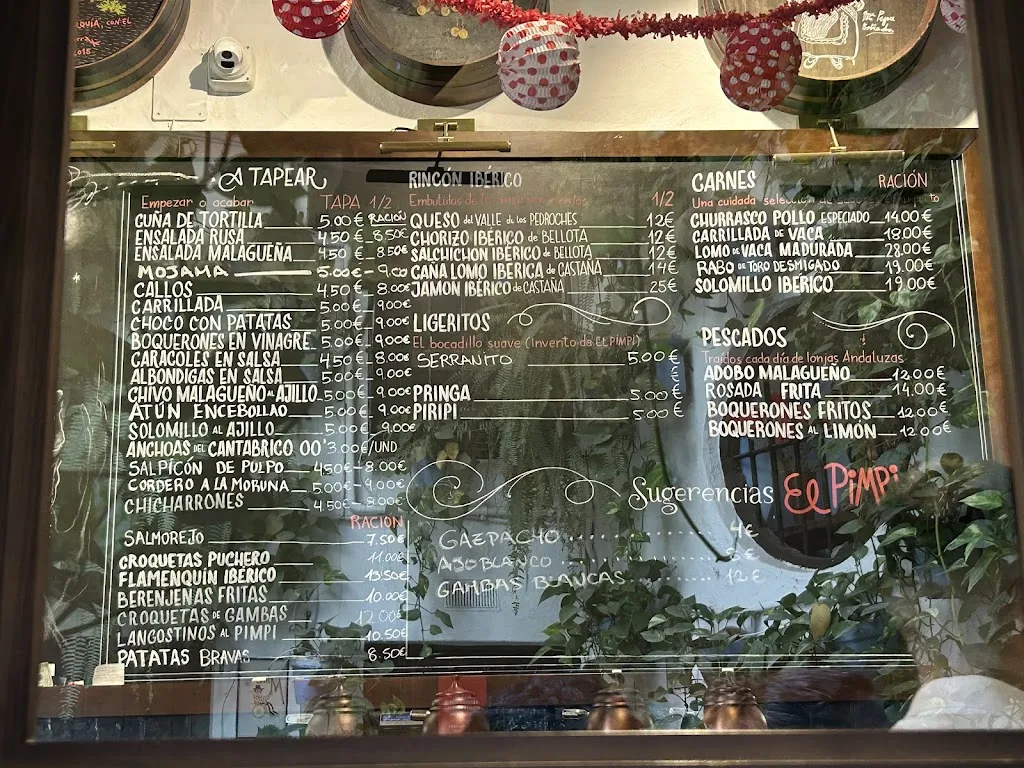 QUÍA, CON EL
2018
A TAPEAR
Empezar o acabar TAPA 1/2
CUÑA DE TORTILLA 5.00€ RACIÓN
ENSALADA RUSA 4.50€ 8.50€
ENSALADA MALAGUEÑA 4.50€ 8.50€
MOJAMA 5.00€ - 9.00
CALLOS 4.50€ 8.00€
CARRILLADA 5.00€ 9.00€
CHOCO CON PATATAS 5.00€ 9.00€
BOQUERONES EN VINAGRE 5.00€ 9.00€
CARACOLES EN SALSA 4.50€ 8.00€
ALBONDIGAS EN SALSA 5.00€ 9.00€
CHIVO MALAGUEÑO AL AJILLO 5.00€ 9.00€
ATÚN ENCEBOLLAO 5.00€ 9.00€
SOLOMILLO AL AJILLO 5.00€ 9.00€
ANCHOAS DEL CANTABRICO 00' 3.00€/UND
SALPICÓN DE PULPO 4.50€ - 8.00€
CORDERO A LA MORUNA 5.00€ - 9.00€
CHICHARRONES 4.50€ - 8.00€
RACIÓN
SALMOREJO 7.50€
CROQUETAS PUCHERO 11.00€
FLAMENQUÍN IBÉRICO 13,50€
BERENJENAS FRITAS 10.00€
CROQUETAS DE GAMBAS 12.00€
LANGOSTINOS AL PIMPI 10.50€
PATATAS BRAVAS 8.50€
RINCÓN IBÉRICO
Embutidos de 1/2
QUESO del VALLE de los PEDROCHES 12€
CHORIZO IBÉRICO de BELLOTA 12€
SALCHICHON IBÉRICO de BELLOTA 12€
CAÑA LOMO IBERICA de CASTAÑA 14€
JAMON IBÉRICO de CASTAÑA 25€
LIGERITOS
El bocadillo suave (Invento de EL PIMPI)
SERRANITO 5.00€
PRINGA 5.00€
PIRIPI 5.00€
CARNES RACIÓN
Una cuidada selección
CHURRASCO POLLO ESPECIADO 14.00€
CARRILLADA DE VACA 18.00€
LOMO DE VACA MADURADA 28.00€
RABO DE TORO DESMIGADO 19.00€
SOLOMILLO IBÉRICO 19.00€
PESCADOS
Traídos cada día de lonjas Andaluzas
ADOBO MALAGUEÑO 12.00€
ROSADA FRITA 14.00€
BOQUERONES FRITOS 12.00€
BOQUERONES AL LIMÓN 12.00€
Sugerencias EL PiMPi
GAZPACHO 4€
AJOBLANCO €
GAMBAS BLANCAS 12€